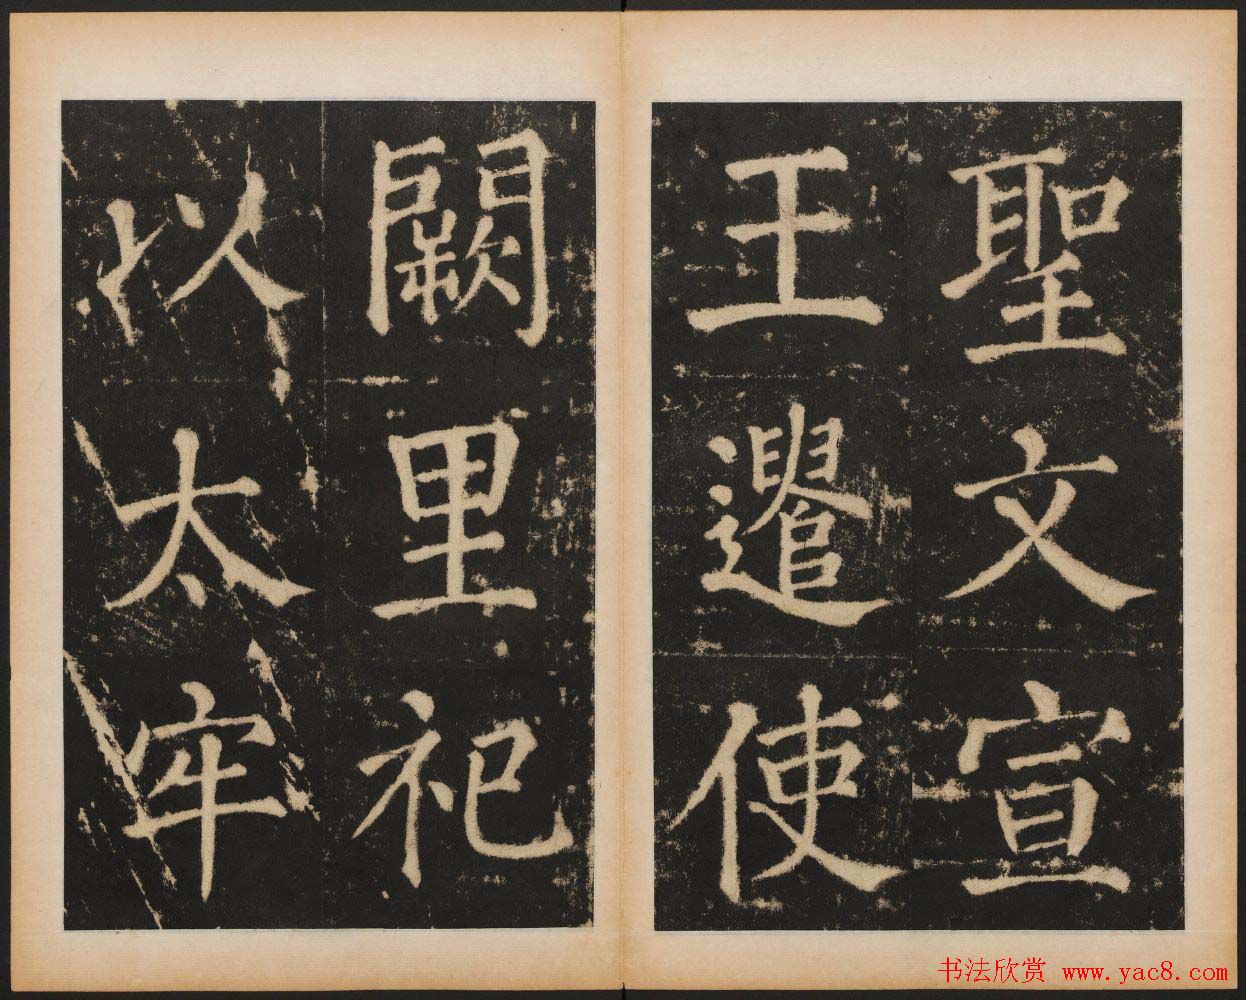 聖文宣
王遣使
闕里祀
以太牢
书法欣赏 www.yac8.com